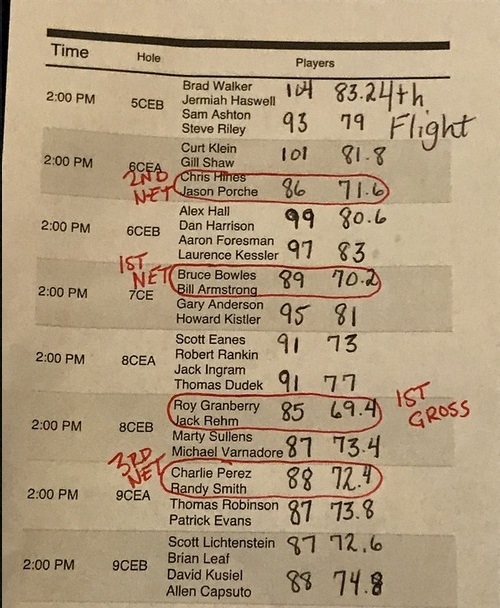 Time Hole Players
Brad Walker 104 83.2 4th
2:00 PM 5CEB Jermiah Haswell
Sam Ashton 93 79 Flight
Steve Riley
Curt Klein 101 81.8
2:00 PM 6CEA Gill Shaw
2ND Chris Hines
NET Jason Porche 86 71.6
Alex Hall 99 80.6
2:00 PM 6CEB Dan Harrison
Aaron Foresman 97 83
Laurence Kessler
1ST NET Bruce Bowles 89 70.2
2:00 PM 7CE Bill Armstrong
Gary Anderson 95 81
Howard Kistler
Scott Eanes 91 73
2:00 PM 8CEA Robert Rankin
Jack Ingram
Thomas Dudek 91 77
Roy Granberry 85 69.4 1ST
2:00 PM 8CEB Jack Rehm GROSS
Marty Sullens
Michael Varnadore 87 73.4
3RD Charlie Perez 88 72.4
NET Randy Smith
2:00 PM 9CEA Thomas Robinson 87 73.8
Patrick Evans
Scott Lichtenstein 87 72.6
2:00 PM 9CEB Brian Leaf
David Kusiel 88 74.8
Allen Capsuto